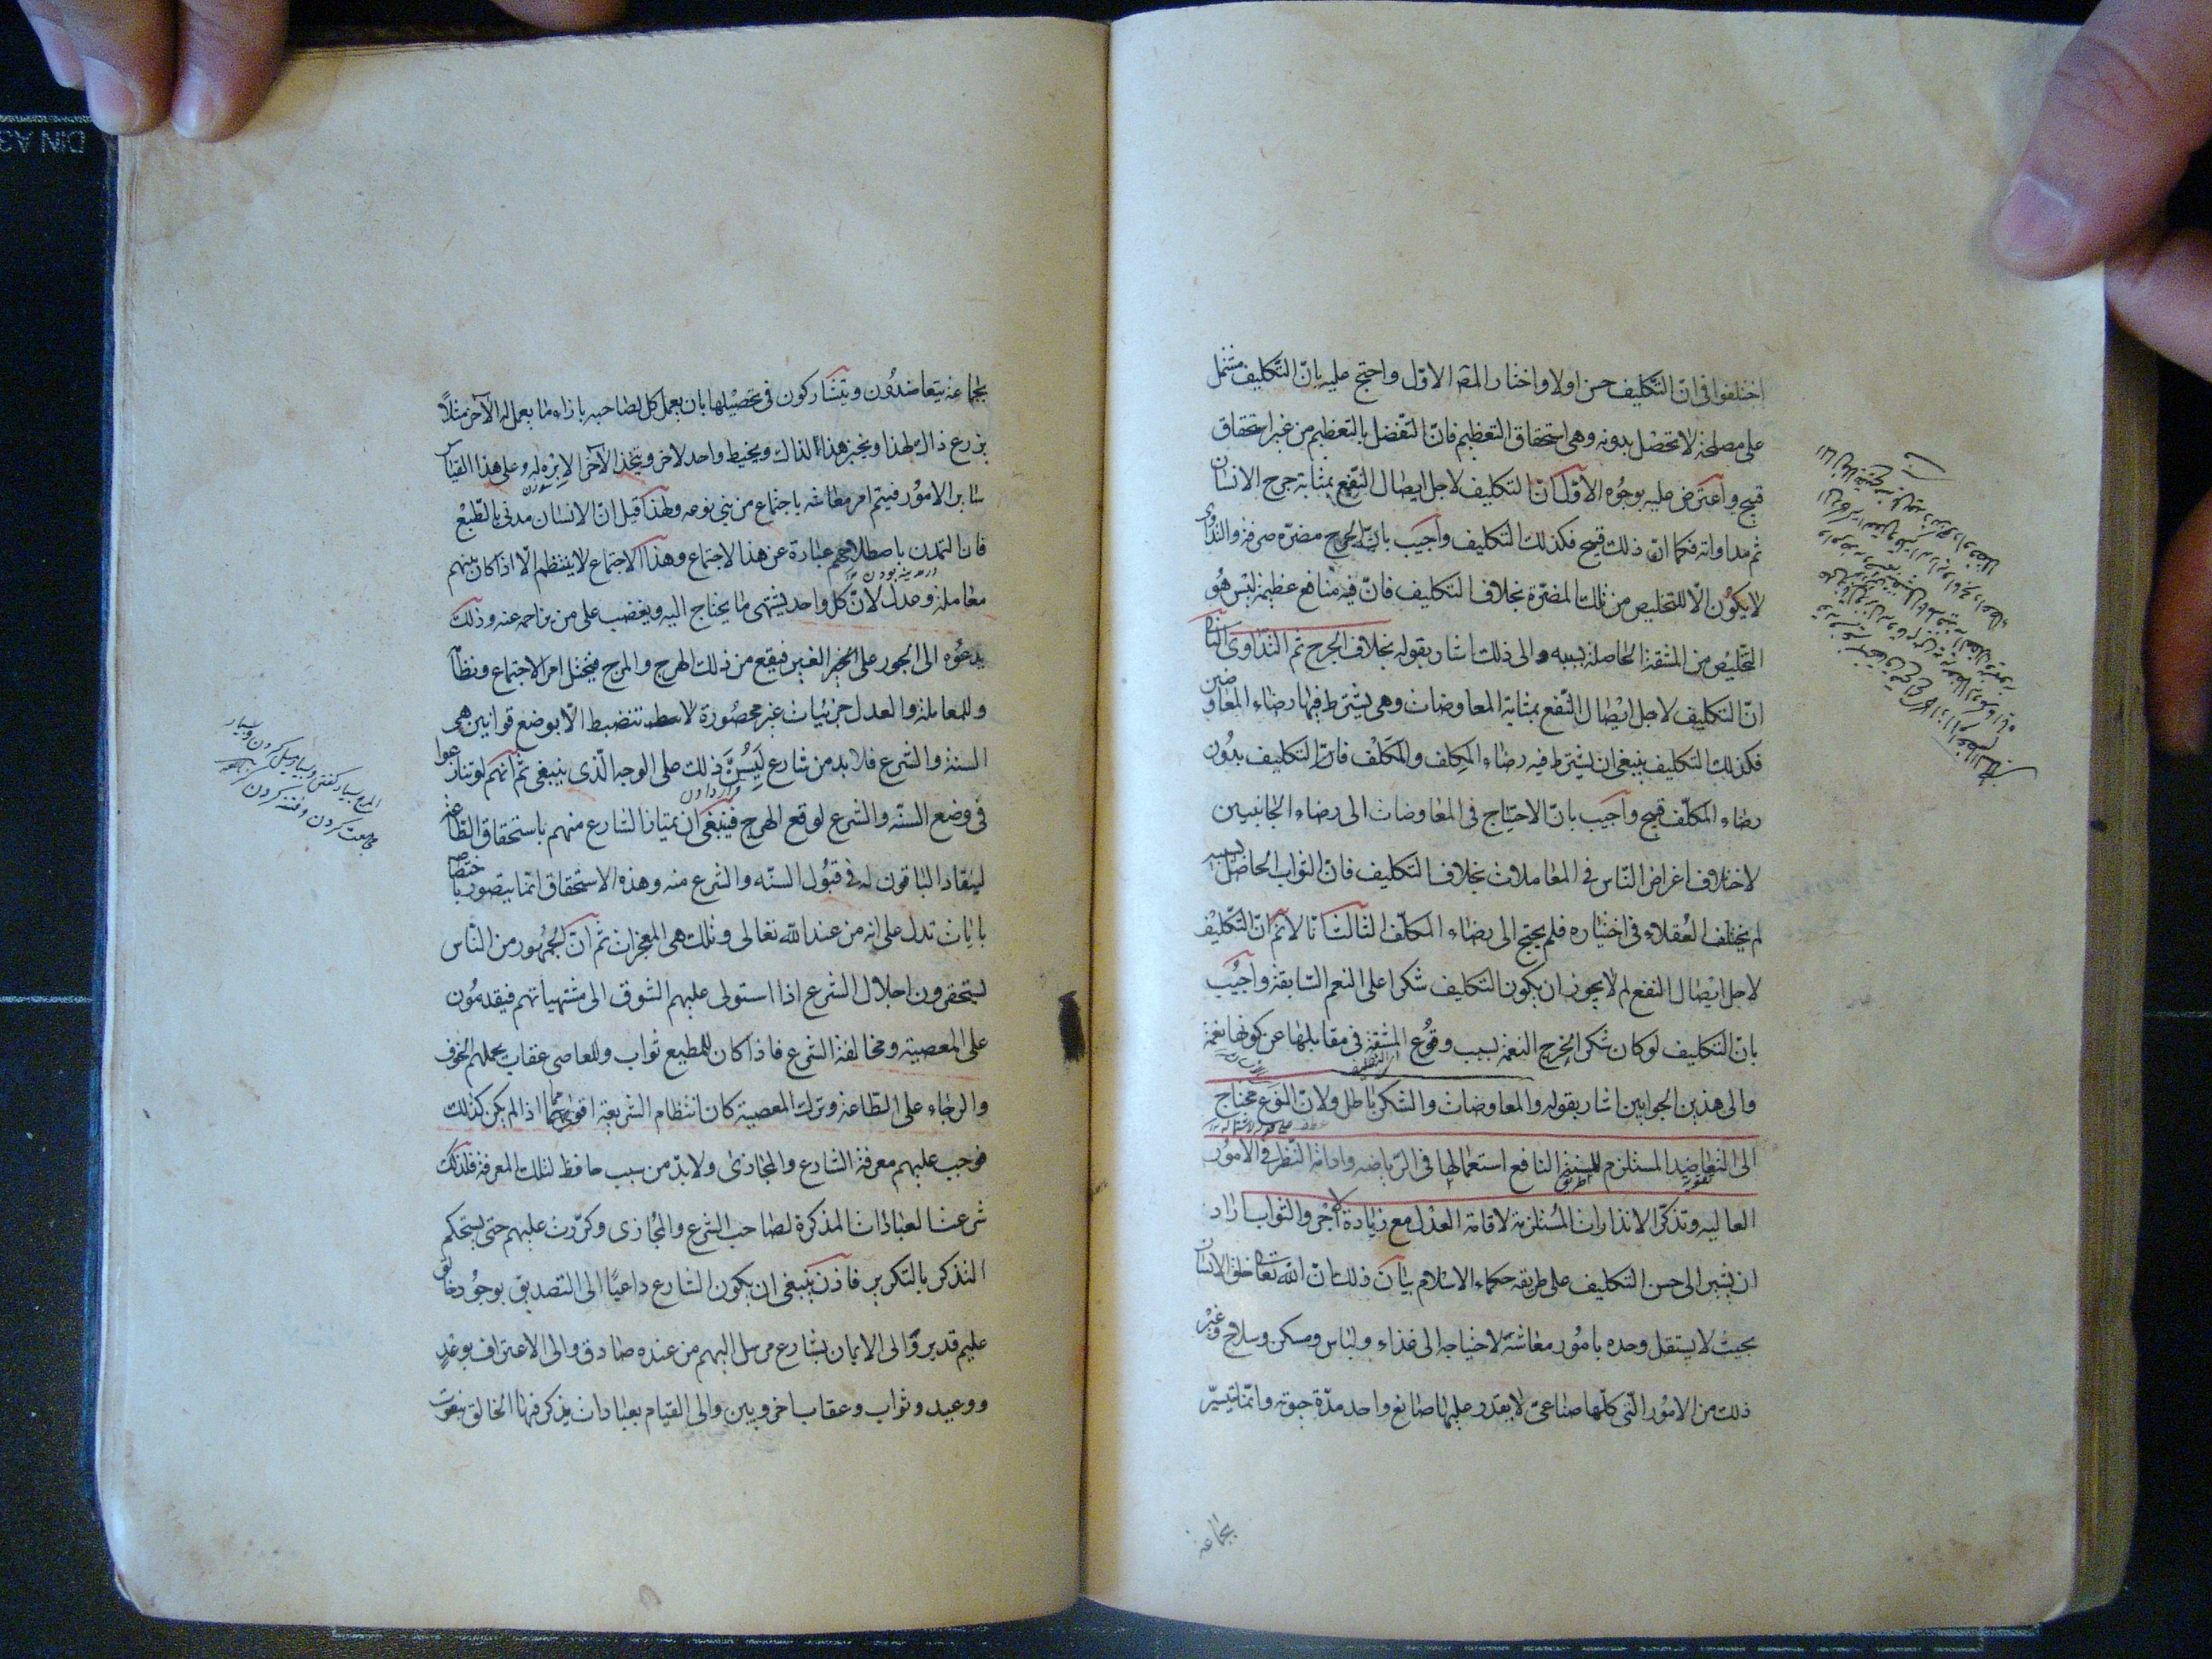 اختلفوا فى انّ التكليف حسن اولا واختار المصـ الاوّل واحتج عليه بانّ التكليف مشتمل
على مصلحة لا تحصل بدونه وهى استحقاق التعظيم فانّ التفضل بالتعظيم من غير استحقاق
قبيح واعترض عليه بوجوه الاوّل انّ التكليف لاجل ايصال النفع بمثابة جرح الانسان
ثم مداواته فكما انّ ذلك قبيح فكذلك التكليف واجيب بانّ الجرح مضرّة صرفة والتداوى
لا يكون الّا للتخليص من تلك المضرّة بخلاف التكليف فانّ فيه منافع عظيمة ليس هو
التخليص من المشقة الحاصلة بسببه والى ذلك اشار بقوله بخلاف الجرح ثم التداوى الثانى
انّ التكليف لاجل ايصال النفع بمثابة المعاوضات وهى يشترط فيها رضاء المعاوضين
فكذلك التكليف ينبغى ان يشترط فيه رضاء المكلف والمكلف فانّ التكليف بدون
رضاء المكلّف قبيح واجيب بانّ الاحتياج فى المعاوضات الى رضاء الجانبين
لاختلاف اغراض الناس فى المعاملات بخلاف التكليف فانّ الثواب الحاصل بسببه
لم يختلف العقلاء فى اختياره فلم يحتج الى رضاء المكلّف الثالث انّا لا نمّ انّ التكليف
لاجل ايصال النفع لم لا يجوز ان يكون التكليف شكرا على النعم السابقة واجيب
بانّ التكليف لو كان شكرا لخرج النعمة بسبب وقوع المشقة فى مقابلها عن كونها نعمة
والى هذين الجوابين اشار بقوله والمعاوضات والشكر باطل ولانّ النوع محتاج
الى التعاضد المستلزم للسنة النافع استعمالها فى الرياضه وادامة النظر فى الامور
العاليه وتذكّر الانذارات المستلزمة لاقامة العدل مع زيادة الاجر والثواب اراد
ان يشير الى حسن التكليف على طريقه حكماء الاسلام بيان ذلك انّ الله تعالى خلق الانسان
بحيث لا يستقل وحده بامور معاشه لاحتياجه الى غذاء ولباس ومسكن وسلاح وغير
ذلك من الامور التى كلّها صناعى لا يقدر عليها صانع واحد مدّة حيوته وانّما تيسّر
بجماعة
بجماعة يتعاضدون ويتشاركون فى تحصيلها بان يعمل كل لصاحبه بازاء ما يعمل له الآخر مثلاً
يزرع ذاك لهذا ويخبز هذا لذاك ويخيط واحد لاخر ويتخذ الآخر الابرة له وعلى هذا القياس
سائر الامور فيتم امر معاشه باجتماع من بنى نوعه ولهذا قيل انّ الانسان مدنى بالطّبع
فان التمدن باصطلاحهم عبارة عن هذا الاجتماع وهذا الاجتماع لا ينتظم الّا اذا كان بينهم
معاملة وعدل لانّ كل واحد يشتهى ما يحتاج اليه ويغضب على من يزاحمه عنه وذلك
يدعوه الى الجور على الغير فيقع من ذلك الهرج والمرج فيختل امر الاجتماع ونظا
وللمعاملة والعدل جزئيات غير محصورة لا تنضبط الّا بوضع قوانين هى
السنة والشرع فلا بد من شارع ليسنّ ذلك على الوجه الّذى ينبغى ثمّ انّهم لو تنازعوا
فى وضع السنّة والشرع لوقع الهرج فينبغى ان يمتاز الشارع منهم باستحقاق الطّاعة
لينقاد الباقون له فى قبول السنّه والشرع منه وهذه الاستحقاق انّما يتصور باختصاصه
بايات تدل على انه من عند الله تعالى وتلك هى المعجزات ثمّ انّ الجمهور من النّاس
يستحقرون اجلال الشرع اذا استولى عليهم الشوق الى مشتهياتهم فيقدمون
على المعصية ومخالفة الشرع فاذا كان للمطيع ثواب وللعاصى عقاب يحملهم الخوف
والرجاء على الطّاعة وترك المعصية كان انتظام الشريعة اقوى ممّا اذا لم يكن كذلك
فوجب عليهم معرفة الشارع والمجازى ولا بدّ من سبب حافظ لتلك المعرفة فلذلك
شرعت العبادات المذكرة لصاحب الشرع والمجازى وكرّرت عليهم حتى يستحكم
التذكر بالتكرير فاذن ينبغى ان يكون الشارع داعيًا الى التصديق بوجود خالق
عليم قدير والى الايمان بشارع مرسل اليهم من عنده صادق والى الاعتراف بوعد
ووعيد وثواب وعقاب اخرويين والى القيام بعبادات يذكر فيها الخالق بنعوت